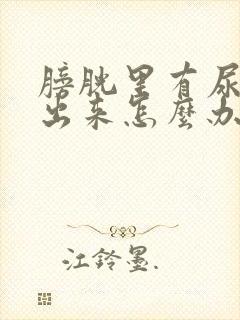 膀胱里有尿
出来怎麽办
江铃墨.